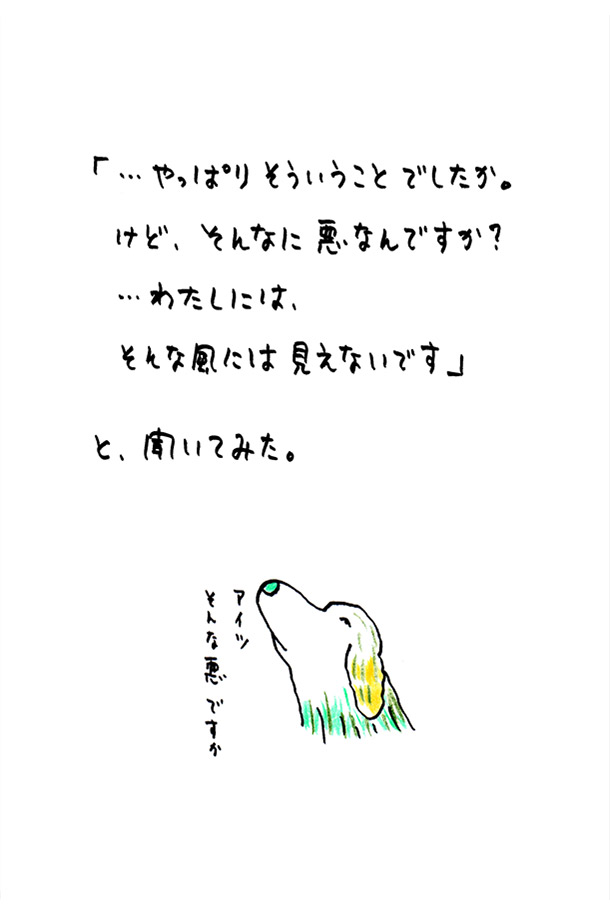 「…やっぱり そういうこと でしたか。
けど、そんなに 悪なんですか？
…わたしには、
そんな風には 見えないです」
と、聞いてみた。
アイツ
そんな悪ですか